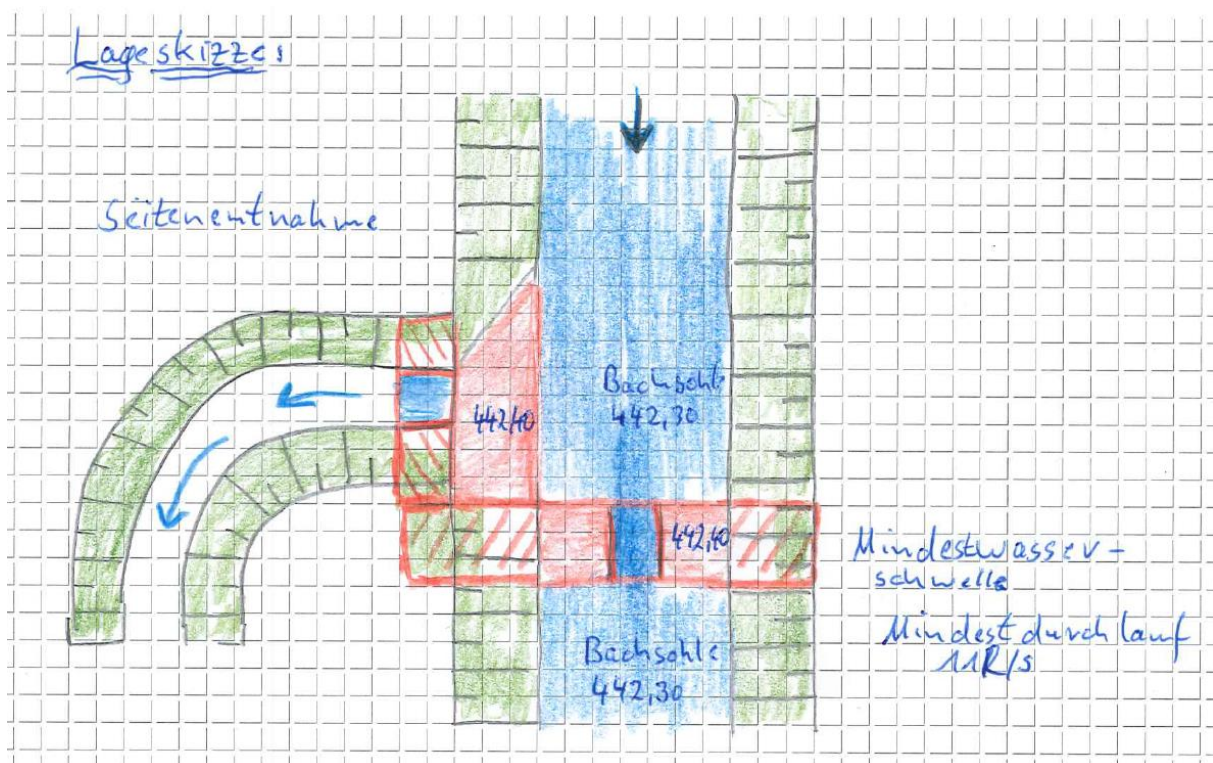 Lageskizze:
Seitenentnahme
Bachsohle
442,30
442,40
442,40
Mindestwasser-
schwelle
Mindestdurchlauf
11 l/s
Bachsohle
442,30